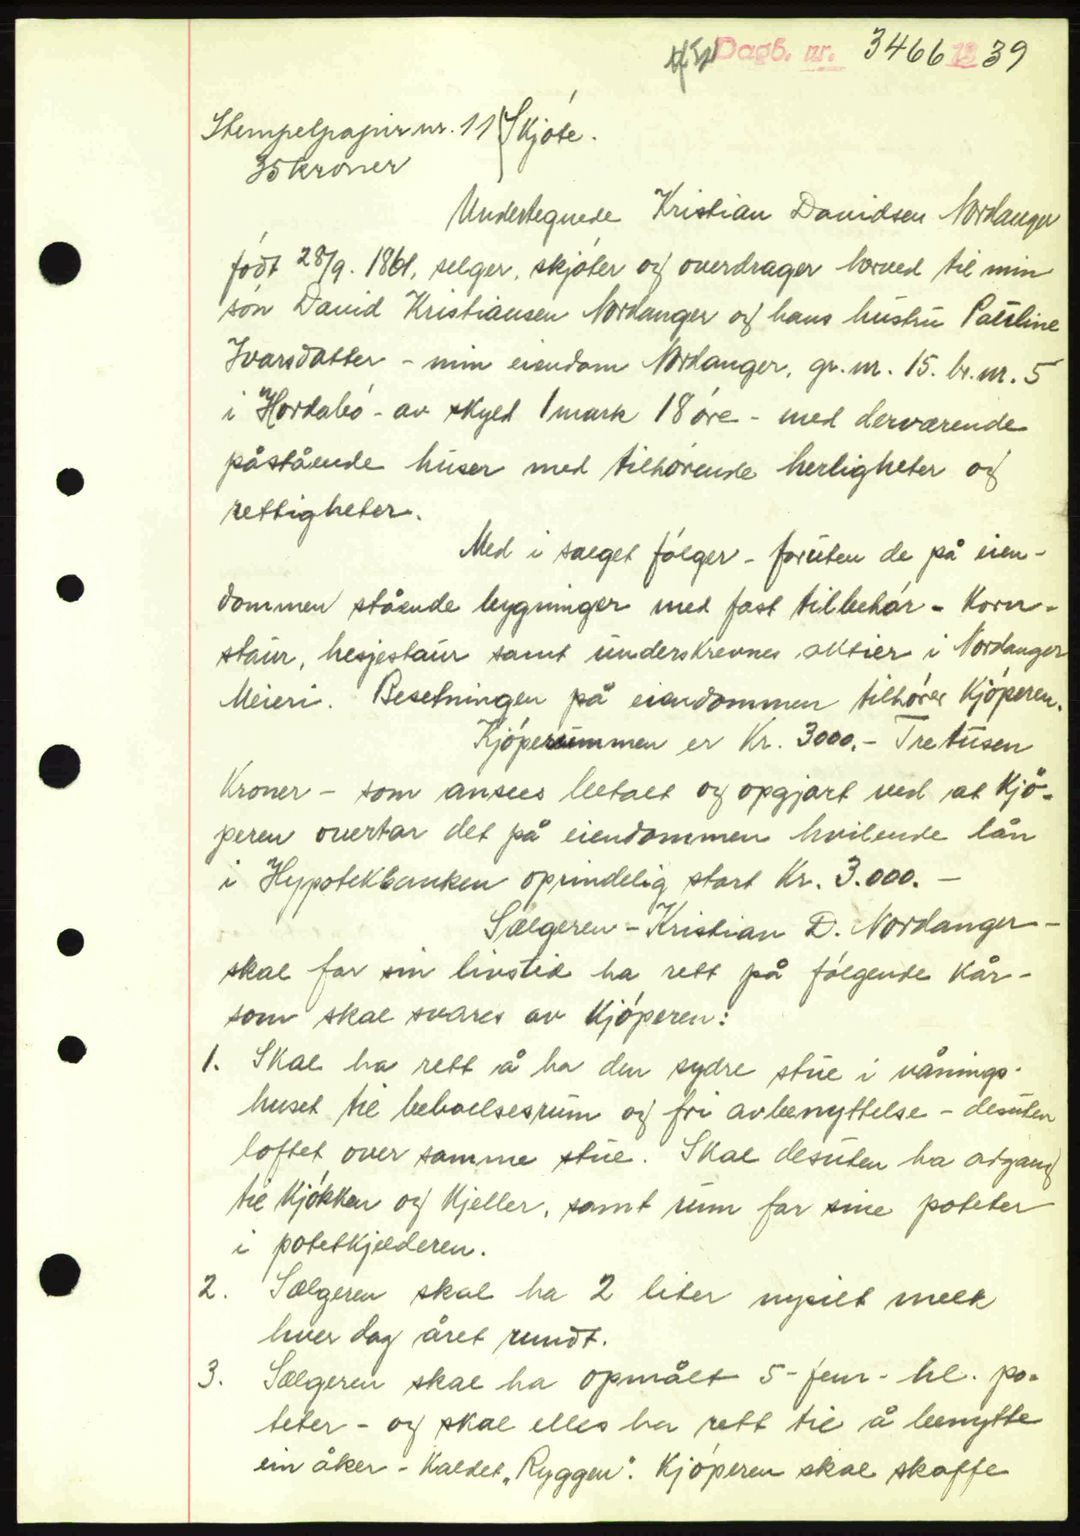 Dagb. nr. 3466 1939
Stempelpapir nr. 11 Skjöte.
35 kroner
Undertegnede Kristian Davidsen Nordanger
födt 28/9. 1861, selger, skjöter og overdrager herved til min
sön David Kristiansen Nordanger og hans hustru Pauline
Ivarsdatter - min eiendom Nordanger, gr. nr. 15. br. nr. 5
i Hordabö - av skyld 1 mark 18 öre - med derværende
påstående huser med tilhörende herligheter og
rettigheter.
Med i salget fölger - foruten de på eien-
dommen stående bygninger med fast tilbehör - korn-
staur, hesjestaur samt underskrevnes aktier i Nordanger
Meieri. Besetningen på eiendommen tilhörer kjöperen.
Kjöpesummen er Kr. 3000.- Tre tusen
Kroner - som ansees betalt og opgjort ved at kjö-
peren overtar det på eiendommen hvilende lån
i Hypotekbanken oprindelig stort Kr. 3.000. -
Sælgeren - Kristian D. Nordanger -
skal for sin livstid ha rett på fölgende kår -
som skal svares av kjöperen:
1. Skal ha rett å ha den sydre stue i vånings-
huset til beboelsesrum og fri avbenyttelse - desuten
loftet over samme stue. Skal desuten ha adgang
til kjökken og kjeller, samt rum for sine poteter
i potetkjelderen.
2. Sælgeren skal ha 2 liter nysilt melk
hver dag året rundt.
3. Sælgeren skal ha opmålt 5 - fem - hl. po-
teter - og skal elles ha rett til å benytte
ein åker - kaldet "Ryggen". Kjöperen skal skaffe